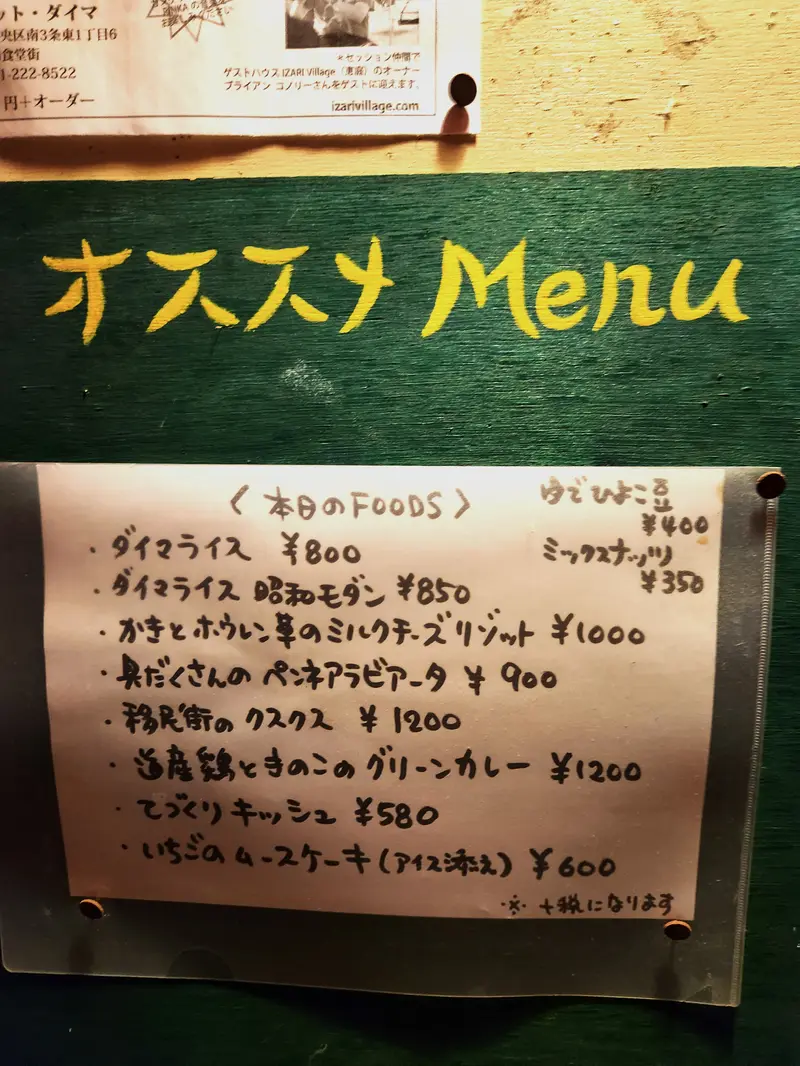 ット・ダイマ
央区南3条東1丁目6
食堂街
1-222-8522
円+オーダー
*セッション仲間で
ゲストハウス IZARI Village（恵庭）のオーナー
ブライアン コノリーさんをゲストに迎えます。
izarivillage.com
オススメ Menu
〈本日のFOODS〉
・ダイマライス ¥800
・ダイマライス 昭和モダン ¥850
・かきとホウレン草のミルクチーズリゾット ¥1000
・具だくさんのペンネアラビアータ ¥900
・移民街のクスクス ¥1200
・道産鶏ときのこのグリーンカレー ¥1200
・てづくりキッシュ ¥580
・いちごのムースケーキ(アイス添え) ¥600
ゆでひよこ豆
¥400
ミックスナッツ
¥350
※ +税になります